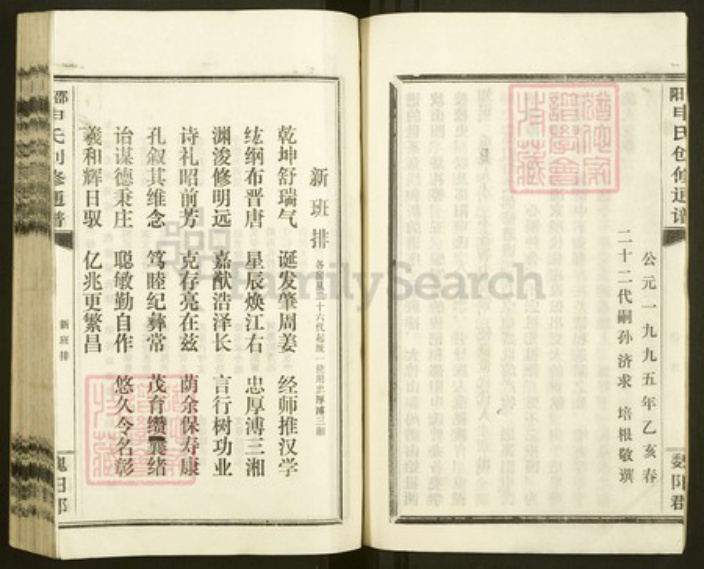 公元一九九五年乙亥春
二十二代嗣孙济求 培根敬撰
新班排
乾坤舒瑞气 诞发肇周姜 经师推汉学
纮纲布晋唐 星辰焕江右 忠厚溥三湘
渊浚修明远 嘉猷浩泽长 言行树功业
诗礼昭前芳 克存亮在兹 荫余保寿康
孔叙其维念 笃睦纪彝常 茂育缵襄绪
诒谋德秉庄 聪敏勤自作 悠久令名彰
羲和辉日驭 亿兆更繁昌
阳申氏创修通谱
魏阳郡
新班排
FamilySearch